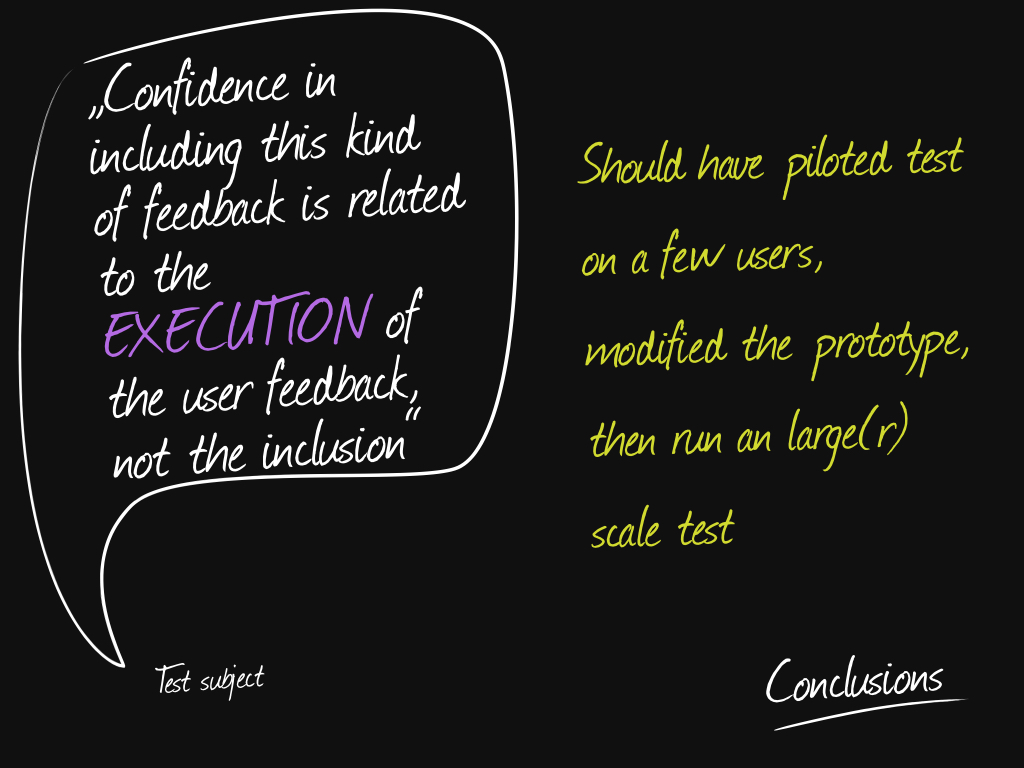 „Confidence in
including this kind
of feedback is related
to the
EXECUTION of
the user feedback,
not the inclusion“
Test subject
Should have piloted test
on a few users,
modified the prototype,
then run an large(r)
scale test
Conclusions